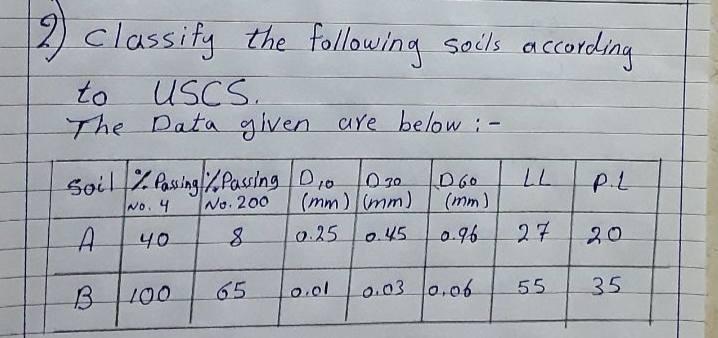 2) Classify the following soils according
to USCS.
The Data given are below :-
Soil % Passing No. 4 % Passing No. 200 D10 (mm) D30 (mm) D60 (mm) LL P.L
A 40 8 0.25 0.45 0.96 27 20
B 100 65 0.01 0.03 0.06 55 35